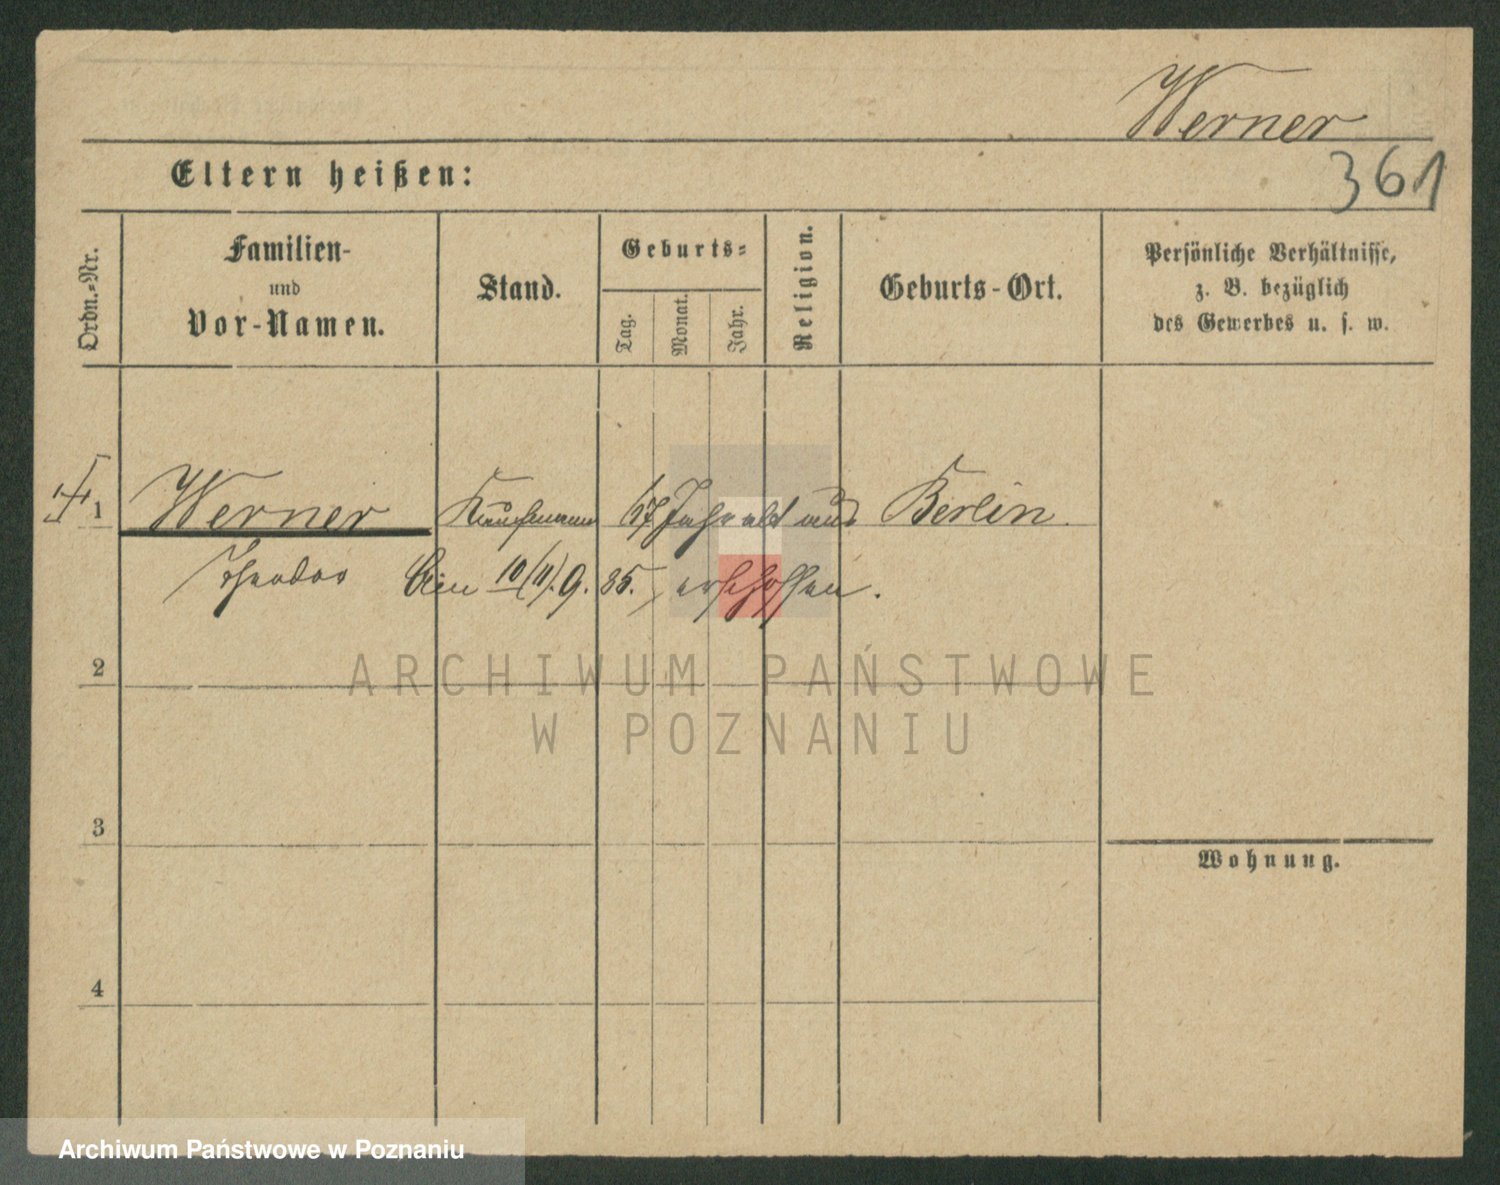 Werner
361
Eltern heißen:
Ordn.-Nr.
Familien-
und
Vor-Namen.
Stand.
Geburts-
Tag.
Monat.
Jahr.
Religion.
Geburts-Ort.
Persönliche Verhältnisse,
z. B. bezüglich
des Gewerbes u. s. w.
1 Werner Kaufmann 67 Jahr alt aus Berlin.
Theodor Am 10/11. 9. 85. erschossen.
2
ARCHIWUM PAŃSTWOWE
W POZNANIU
3
Wohnung.
4
Archiwum Państwowe w Poznaniu